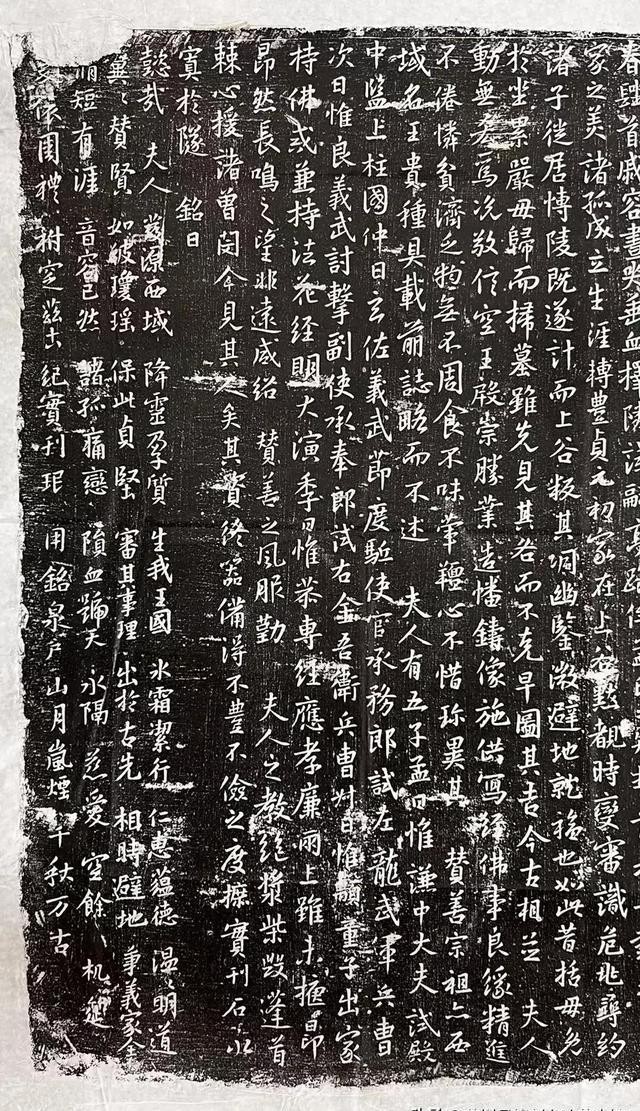 家之美諸孤成立生涯摶豊貞元初家在上谷黙覩時變審識危兆尋約
諸子徙居愽陵既遂計而上谷叛其洞幽鑒微避地就稔也如此昔括母免
於坐累嚴母歸而掃墓雖先見其咎而不克早圖其吉今古相並 夫人
動無為焉况敬信空王殿崇勝業造憣鑄像施供寫經佛事良緣精進
不倦憐貧濟乏物無不周食不味葷羶心不惜珎異其 賛善宗祖亦西
域名王貴種具載前誌略而不述 夫人有五子孟曰惟謙中大夫試殿
中監上柱國仲曰玄佐義武節度駈使官承務郎試左龍武軍兵曹
次曰惟良義武討擊副使承奉郎試右金吾衛兵曹 次曰惟願童子出家
持佛或並持法花經明大演季曰惟恭專經應孝廉兩上雖未搵昂
昂然長鳴之望非遠咸紹 賛善之風服勤 夫人之教絕漿柴毀蓬首
棘心援諸曽閔今見其人矣其賓終器備得不豊不儉之度擦實刊石永
寘於隧 銘曰
懿哉 夫人 發源西域 降靈孕質 生我王國 氷霜潔行 仁恵蕴德 温明道
冀冀賛賢 如彼瓊瑶 保此貞堅 審其事理 出於古先 相時避地 爭義家全
脩短有涯 音容已然 諸孤痛戀 隕血號天 永隔慈愛 空餘机筵
爰依周禮 祔窆茲 紀實刊珉 用銘泉户 山月嵐煙 千秋万古